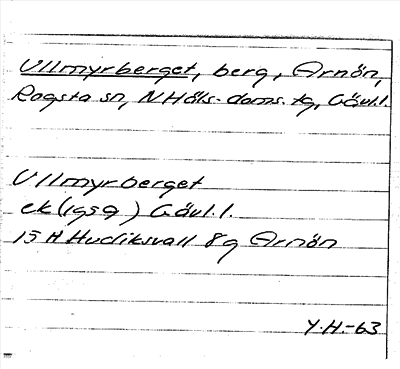 Ullmyrberget, berg, Arnön,
Rogsta sn, N Häls. doms. tg, Gävl.l.
Ullmyrberget
ek (1959) Gävl.l.
15 H Hudiksvall 8g Arnön
Y.H.-63